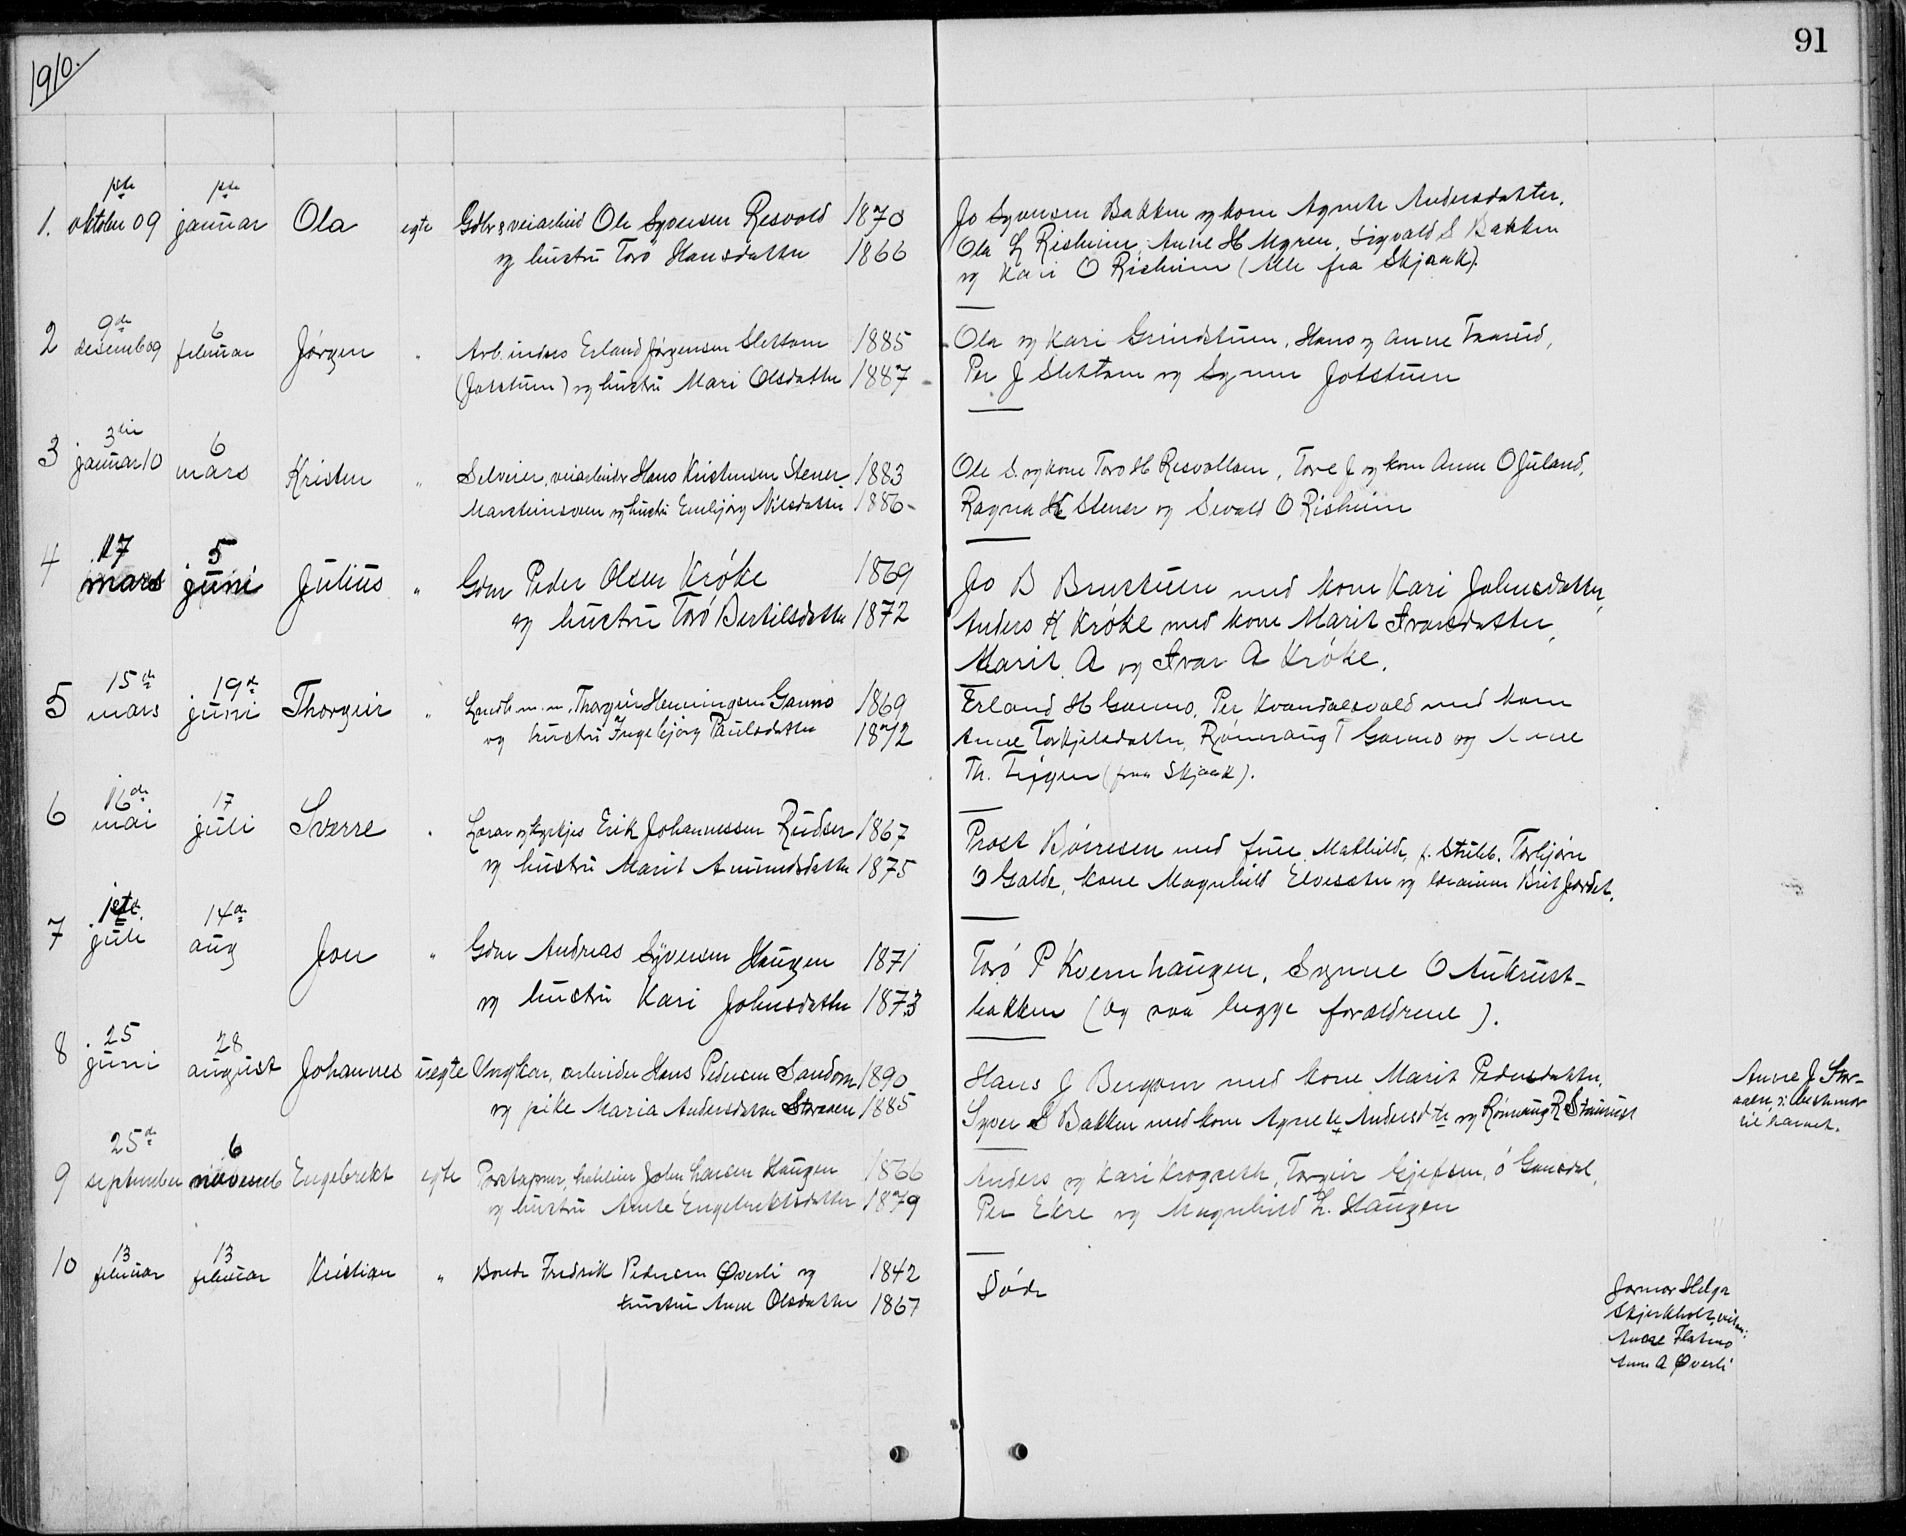 1910.
91
1. 1ste oktober 09 1ste januar Ola egte Gdbr & veiarbeid Ole Syversen Resvold 1870
og hustru Toro Hansdatter 1866
Jo Syversen Bakken og kone Agnete Andersdatter.
Ola L Risheim, Anne H Myren, Sigvald S Bakken
og Kari O Risheim (Alle fra Skjaak).
2 9de desemb 09 6 februar Jørgen " Arb. inders Erland Jørgensen Slettom 1885
(Jotstuen) og hustru Mari Olsdatter 1887
Ola og Kari Grindstuen, Hans og Anne Taarud,
Per J Slettom og Synne Jotstuen
3 3die januar 10 6 mars Kristen " Selveier, veiarbeider Hans Kristensen Stener 1883
Marsteinsveen og hustru Embjørg Nilsdatter 1886
Ole S. og kone Toro H Resvollen, Tore J og kone Anne O Juland,
Ragna K Stener og Sevald O Risheim
4 17 mars 5 juni Julius " Gdm Peder Olsen Krøke 1869
og hustru Toro Bertilsdatter 1872
Jo B Brustuen med kone Kari Johnsdatter,
Anders K Krøke med kone Marit Ivarsdatter,
Marit A og Ivar A Krøke.
5 15de mars 19de juni Thorgeir " Landh. m. m. Thorgeir Henningsen Garmo 1869
og hustru Ingebjørg Paulsdatter 1872
Erland H Garmo, Per Kvandalsvold med kone
Anne Torkjelsdatter, Rønnaug T Garmo og Anne
Th. Teigen (fraa Skjaak).
6 16de mai 17 juli Sverre " Lærar og kyrkjes Erik Johannessen Rudser 1867
og hustru Marit Amundsdatter 1875
Prost Børresen med frue Mathilde, f. Stubb, Torbjørn
O Galde, kone Magnhild Elvesæter og lærarinne Brit Jordet.
7 1ste juli 14de aug Jon " Gdm Andreas Syversen Haugen 1871
og hustru Kari Johnsdatter 1873
Toro P Kvernhaugen, Synne O Aukrust-
bakken (og saa begge forældrene).
8 25 juni 28 august Johannes uegte Ungkar, arbeider Hans Pedersen Sandom 1890
og pike Maria Andersdatter Storaaen 1885
Hans J Bergom med kone Marit Pedersdatter,
Syver S Bakken med kone Agnete Andersdtr og Rønnaug R Staurust
Anne J Stor-
aaen, : bestemor
til barnet.
9 25de september 6 novemb Engebrekt egte Postaapner, Jolen Larsen Haugen 1866
og hustru Anne Engebrektsdatter 1879
Anders og Kari Krogseth, Torgeir Gjefsen, O Gaasdal,
Per Ekre og Magnhild L. Haugen
10 13 februar 13 februar Kristian " Bonde Fredrik Pedersen Øverli og 1842
hustru Anne Olsdatter 1867
Døde
Jormor Helga
Skjerkholt, vitner:
Anne Flatmo
Anne A Øverli